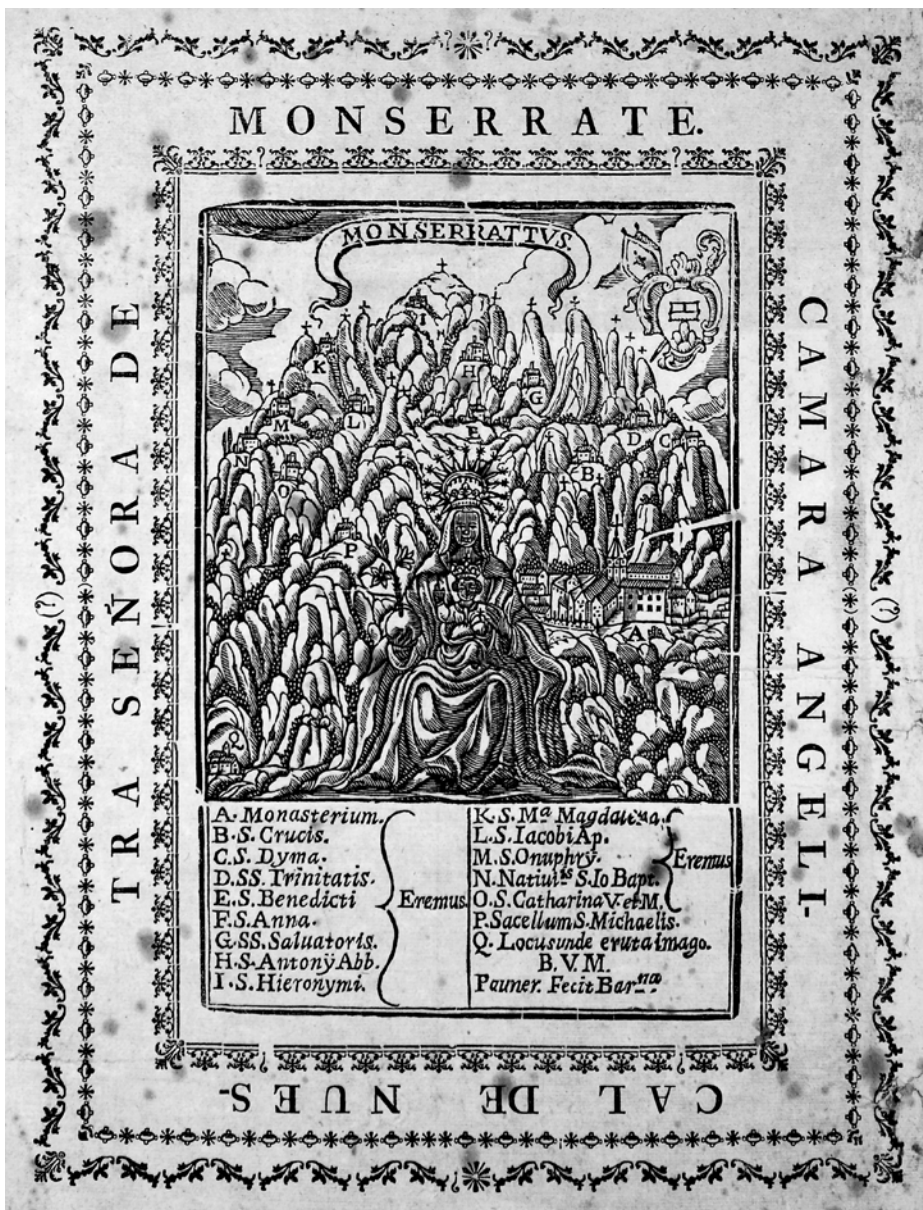 MONSERRATE.
CAMARA ANGELI-
CAL DE NUES-
TRA SEÑORA DE
(?)
(?)
MONSERRATTVS.
K
I
H
G
M
L
E
D
C
N
O
B
P
A
Q
A. Monasterium.
B. S. Crucis.
C. S. Dyma.
D. SS. Trinitatis.
E. S. Benedicti
F. S. Anna.
G. SS. Saluatoris.
H. S. Antonÿ Abb.
I. S. Hieronymi.
Eremus.
K. S. Mª Magdalena.
L. S. Iacobi Ap.
M. S. Onuphrÿ.
N. Natiuitˢ S. Io Bapt.
O. S. Catharina V. et M.
Eremus
P. Sacellum S. Michaelis.
Q. Locus unde eruta imago.
B. V. M.
Pauner. Fecit Barⁿᵃ